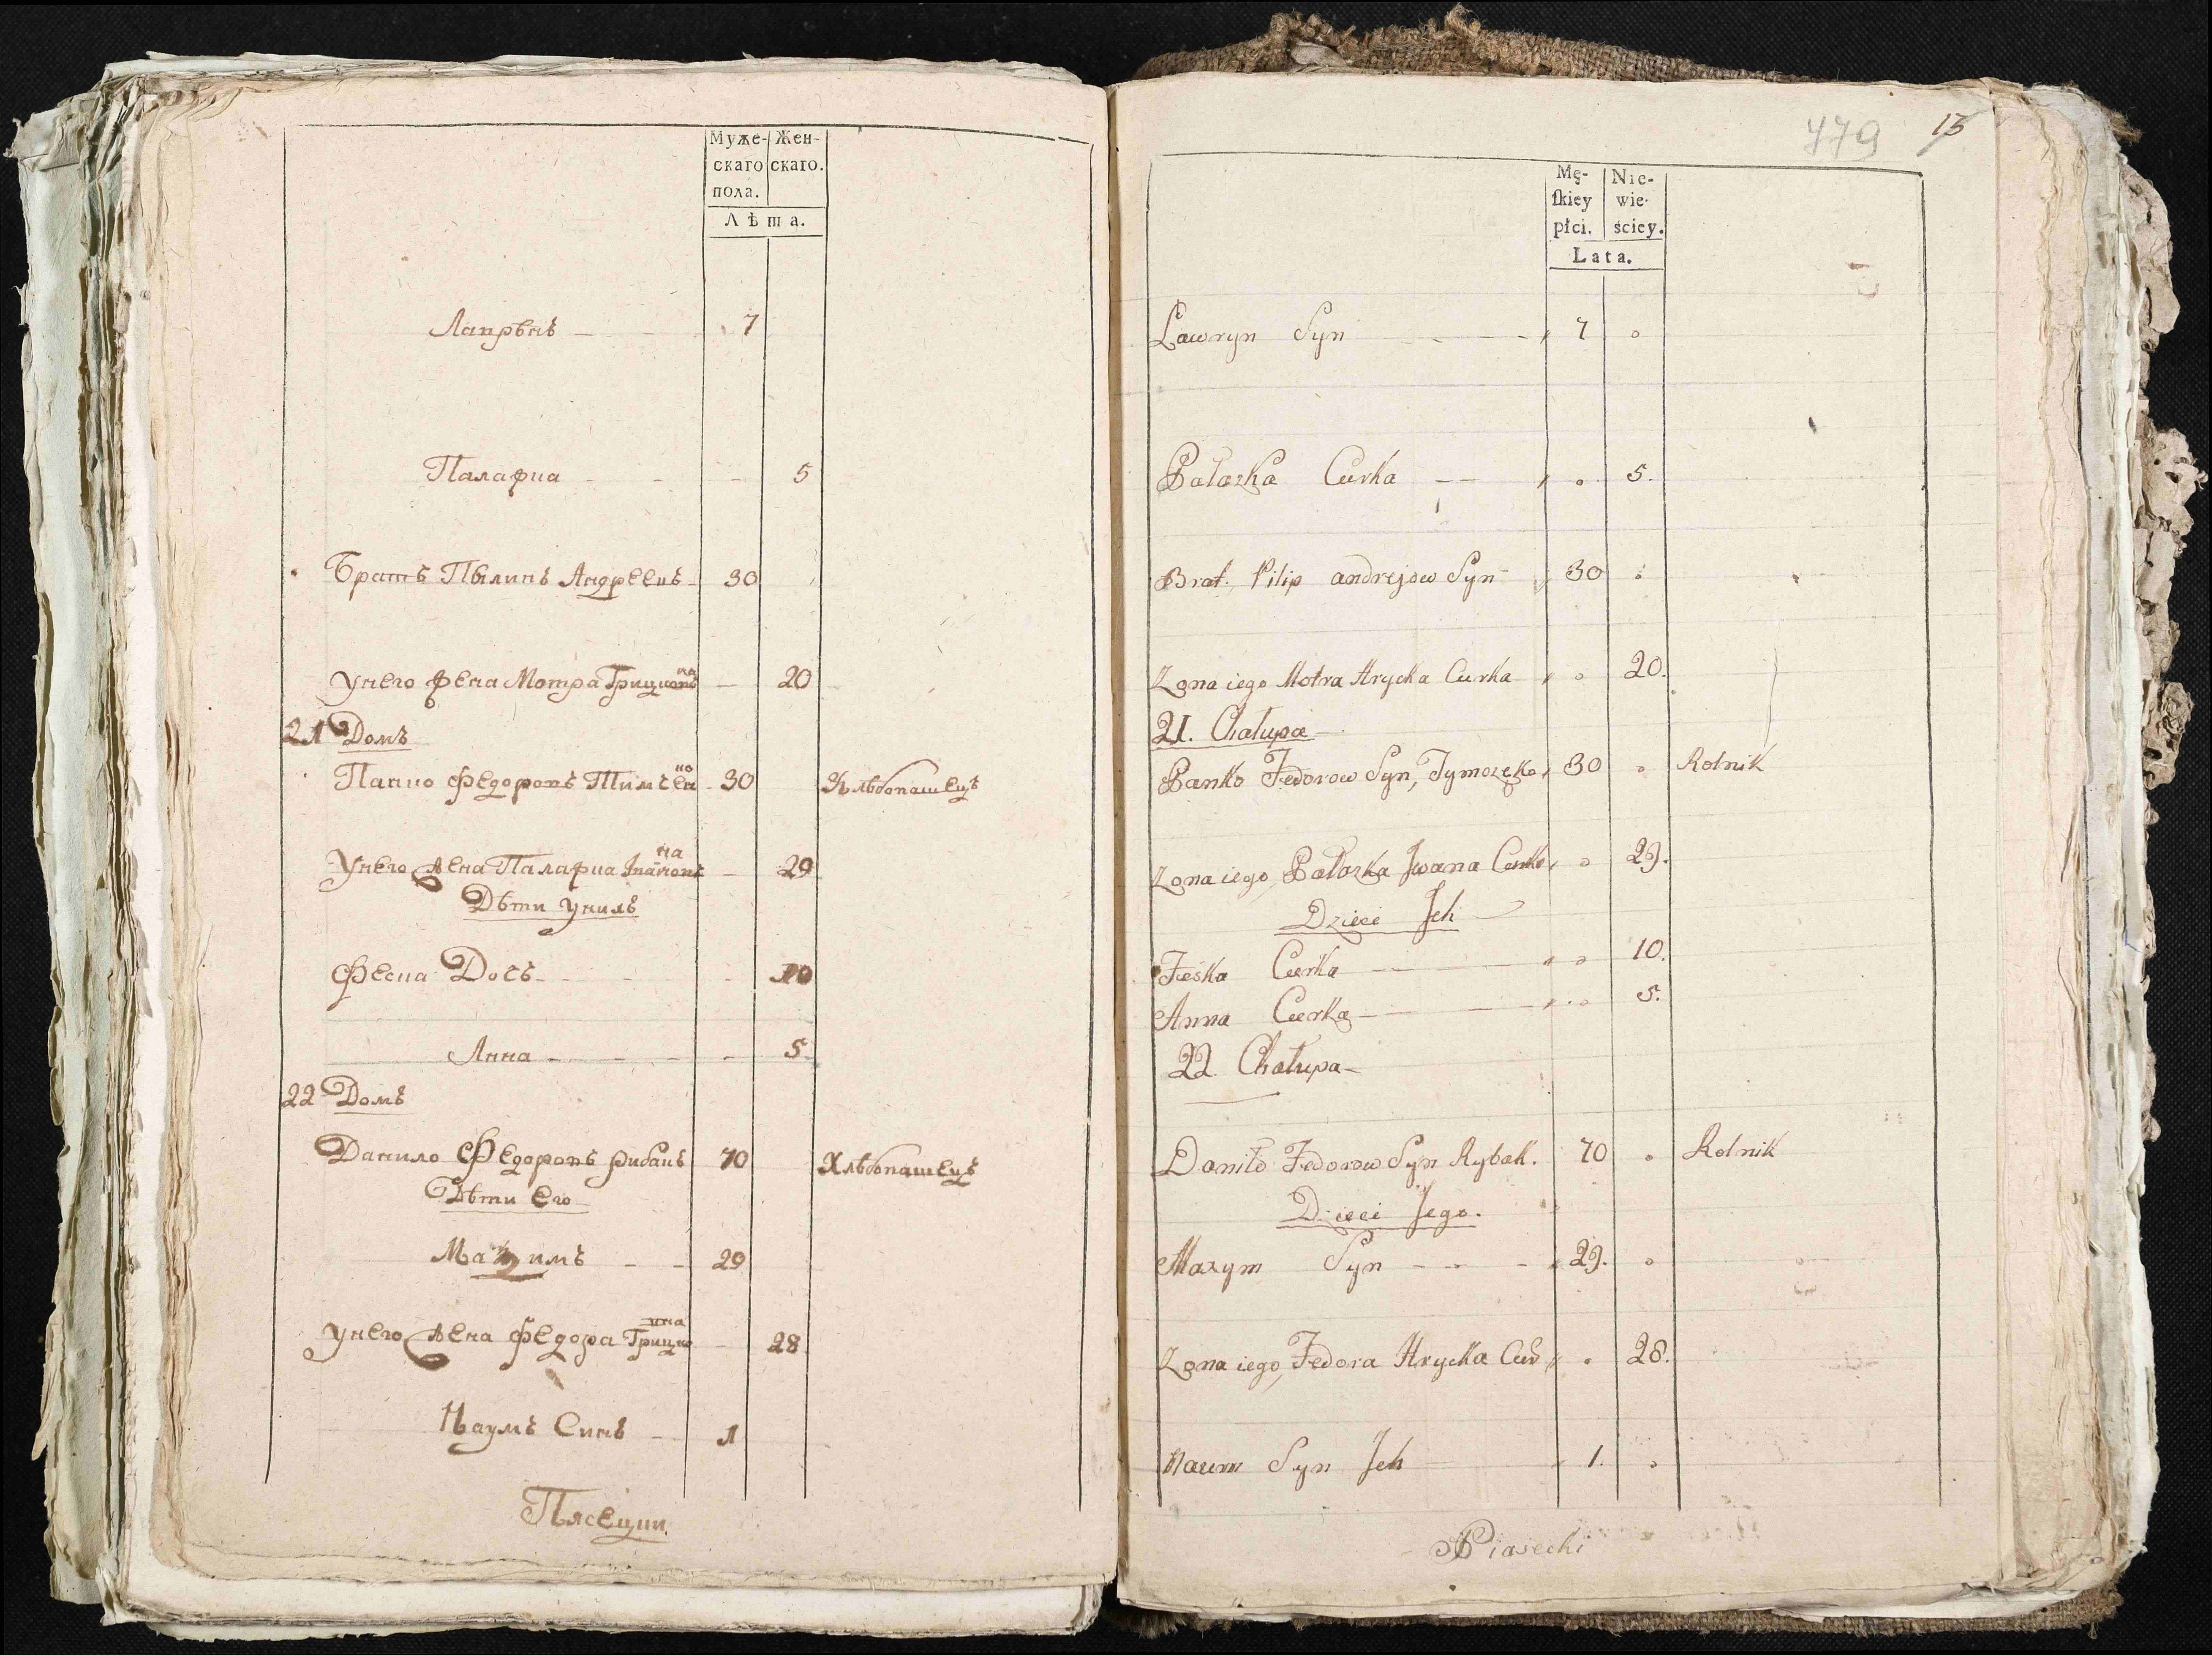 Муже- Жен-
скаго скаго.
пола.
Лѣта.
Лаврѣнъ - - 7
Палафиа - - - 5
Братъ Пылипъ Андреевъ - 30
У него жена Мотра Грицковъна - 20
21 Домъ
Панко Федоровъ Тимченко - 30 Хлѣбопашецъ
У него жена Палафиа Ивановъна - 29
Дѣти у нихъ
Феска Дочь - - - 10
Анна - - - - 5
22 Домъ
Данило Федоровъ Рибакъ 70 Хлѣбопашецъ
Дѣти Его
Мазимъ - - 29
У него жена Федора Грицкоина - 28
Наумъ Синъ - 1
Пясецки
779 15
Mę- Nie-
ſkiey wie-
płci. ściey.
Lata.
Lawryn Syn 7 "
Pałazka Curka - - " 5.
Brat. Pilip andrejow Syn 30 "
Zona iego Motra Hrycka Curka " 20.
21. Chałupa
Panko Fedorow Syn, Tymozęko, 30 " Rolnik
Zona iego, Pałazka Jwana Curka " 29.
Dzieci Jch
Feśka Curka " 10.
Anna Curka " 5.
22 Chałupa
Daniło Fedorow Syn Rybak. 70 " Rolnik
Dzieci Jego.
Maxym Syn - - - 29. "
Zona iego, Fedora Hrycka Cur " 28.
Naum Syn Jch 1. "
Piasecki